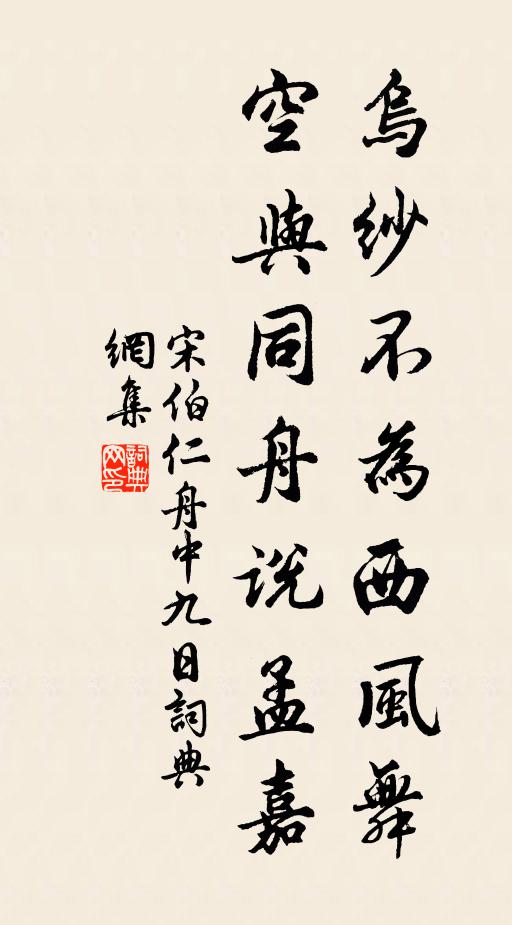 烏紗不為西風舞
空與同舟說孟嘉
宋伯仁舟中九日詞典
網集
詞典
网印